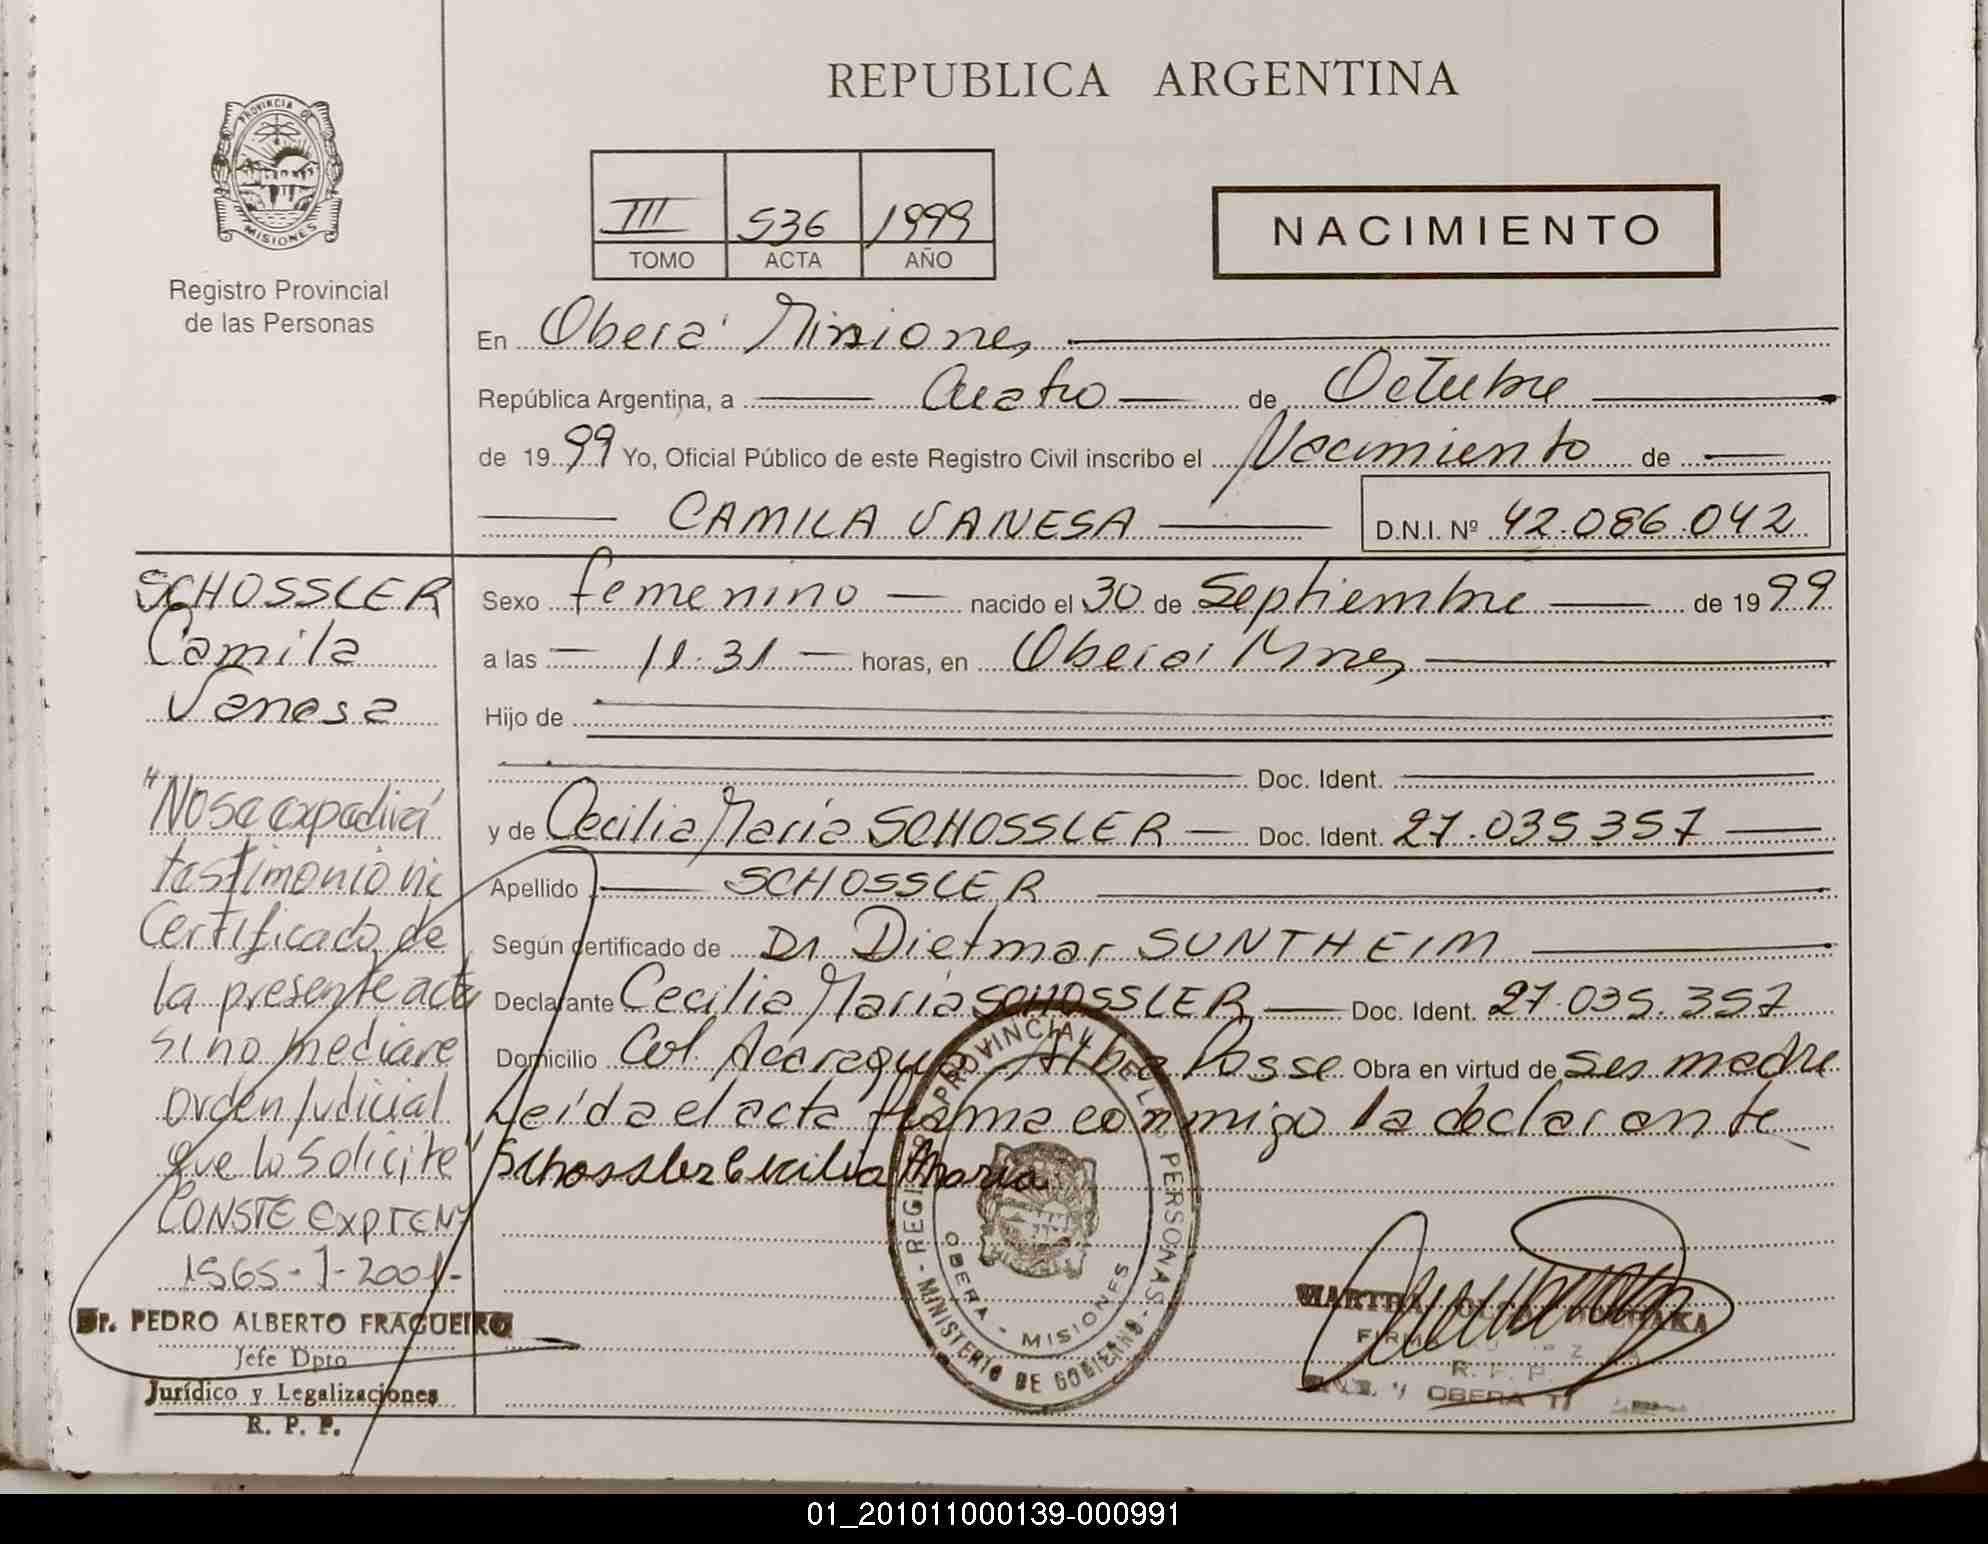 REPUBLICA ARGENTINA
PROVINCIA DE
MISIONES
Registro Provincial
de las Personas
III 536 1999
TOMO ACTA AÑO
NACIMIENTO
En Oberá Misiones
República Argentina, a Cuatro de Octubre
de 1999 Yo, Oficial Público de este Registro Civil inscribo el Nacimiento de
CAMILA VANESA D.N.I. Nº 42.086.042
SCHOSSLER
Camila
Vanesa
"No se expedirá
testimonio ni
Certificado de
la presente acta
si no mediare
Orden Judicial
que lo solicite"
CONSTE EXPTE Nº
1565-J-2001-
Dr. PEDRO ALBERTO FRAGUEIRO
Jefe Dpto
Jurídico y Legalizaciones
R. P. P.
Sexo femenino nacido el 30 de Septiembre de 1999
a las 11.31 horas, en Oberá Mnes
Hijo de
Doc. Ident.
y de Cecilia María SCHOSSLER Doc. Ident. 27.035357
Apellido SCHOSSLER
Según certificado de Dr Dietmar SUNTHEIM
Declarante Cecilia María SCHOSSLER Doc. Ident. 27.035.357
Domicilio Col. Acaragua Alba Posse Obra en virtud de ser madre
Leída el acta firma conmigo la declarante
Schossler Cecilia Maria
REGISTRO PROVINCIAL DE LAS PERSONAS
MINISTERIO DE GOBIERNO
OBERA - MISIONES
MARTHA
R. P. P.
OBERA
01_201011000139-000991